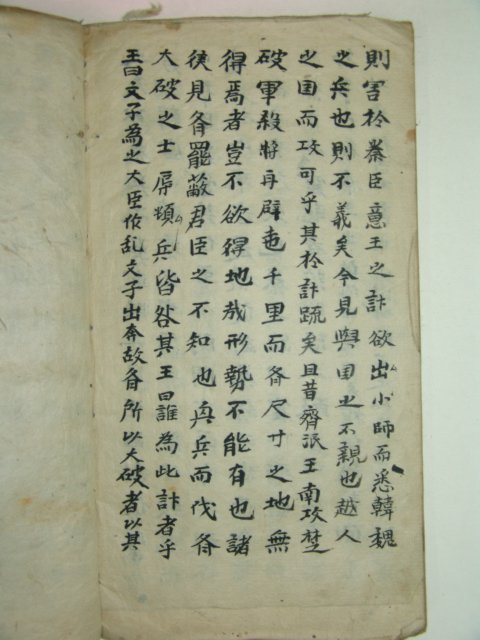 則害於秦臣意王之計欲出小師而悉韓魏
之兵也則不義矣今見與国之不親也越人
之国而攻可乎其於計疏矣且昔齊泯王南攻楚
破軍殺將再辟地千里而斉尺寸之地無
得焉者豈不欲得地哉形勢不能有也諸
侯見斉罷蔽君臣之不知也興兵而伐斉
大破之士辱頓兵皆咎其王曰誰為此計者乎
王曰文子為之大臣作乱文子出奔故斉所以大破者以其